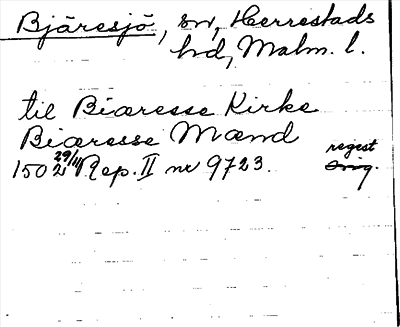 Bjäresjö, sn, Herrestads
hd, Malm. l.
til Biæresse Kirke
Biæresse Mænd
regest
1502 29/11 Rep. II nr 9723. orig.